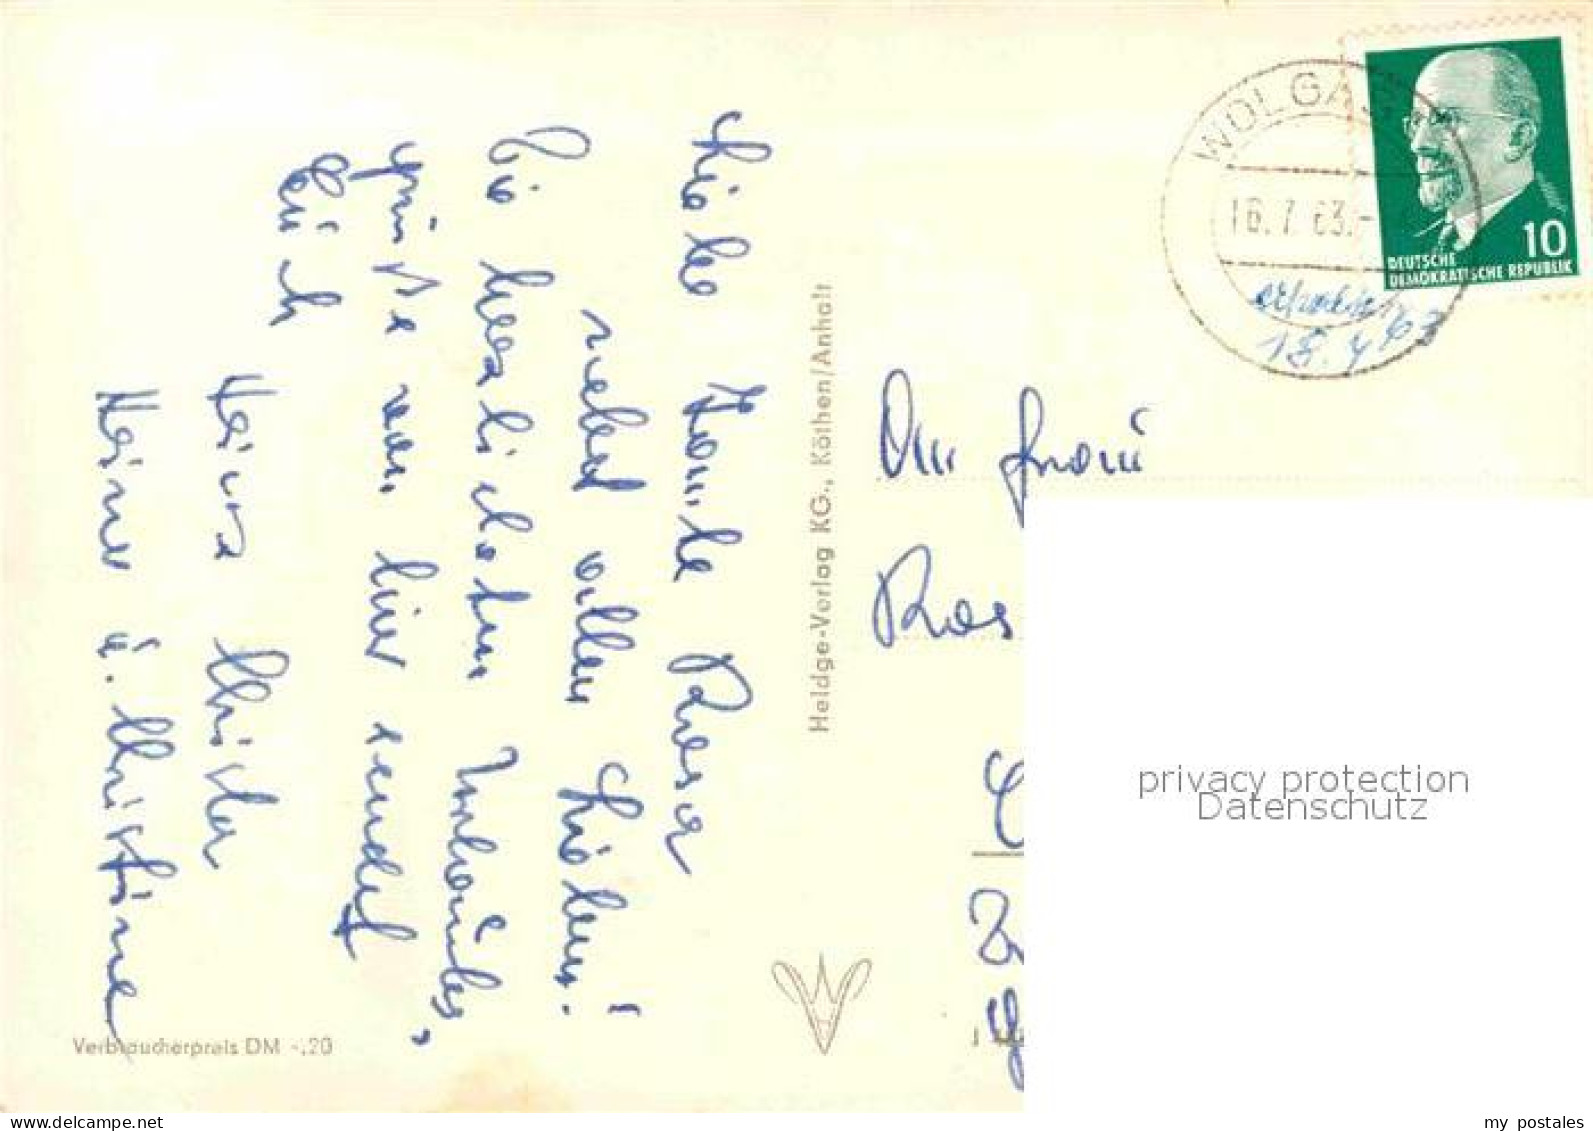 Liebe Tante Rosa
nebst allen Lieben!
Die herzlichsten Urlaubs,
grüße von hier sendet
Euch
Heinz Christa
Heiner u. Christine
Heldge-Verlag KG., Köthen/Anhalt
Verbraucherpreis DM -,20
WOLGAST
16.7.63.-
10
DEUTSCHE
DEMOKRATISCHE REPUBLIK
erhalten
18.7.63
An Frau
Ros
privacy protection
Datenschutz
akpool.de
my postales